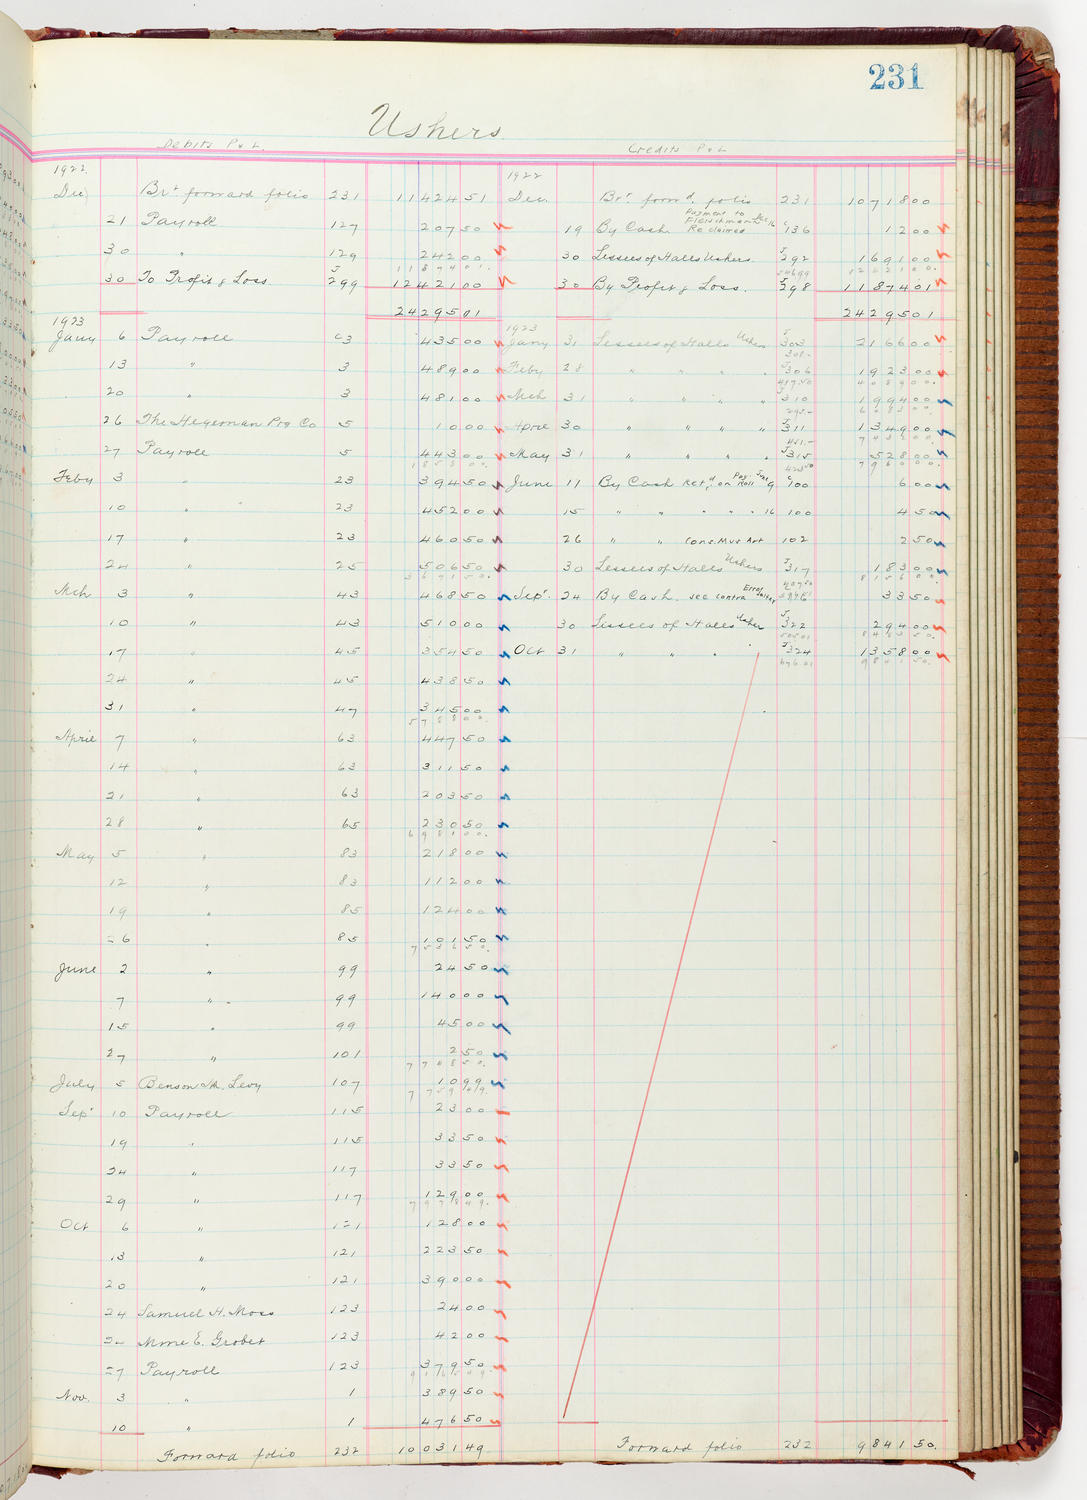 231
Ushers
Debits P & L. Credits P & L
1922 1922
Dec Brt forward folio 231 11424 51 Dec Brt forwd. folio 231 10718 00
21 Payroll 127 207 50 19 By Cash Payment to Fleischman Dec 16 Reclaimed C136 12 00
30 " 129 242 00 30 Lessees of Halls Ushers. J292 1691 00
11874 01. 546.99 12421 00.
30 To Profit & Loss J299 12421 00 30 By Profit & Loss. J298 11874 01
24295 01 24295 01
1923 1923
Jany 6 Payroll 3 435 00 Jany 31 Lessees of Halls Ushers J303 2166 00
13 " 3 489 00 Feby 28 " " " J306 1923 00
4089 00.
20 " 3 481 00 Mch 31 " " " J310 1994 00
6083 00.
26 The Hegeman Prg Co 5 10 00 April 30 " " " J311 1349 00
7432 00.
27 Payroll 5 443 00 May 31 " " " J315 528 00
1858 00. 7960 00.
Feby 3 " 23 394 50 June 11 By Cash Retd on Pay Roll June 9 C100 6 00
10 " 23 452 00 15 " " " " 16 100 4 50
17 " 23 460 50 26 " " Cons. Mus Art 102 2 50
24 " 25 506 50 30 Lessees of Halls Ushers J317 183 00
3671 50. 8156 00.
Mch 3 " 43 468 50 Sepr. 24 By Cash. see contra Error 33 50
10 " 43 510 00 30 Lessees of Halls Ushers J322 294 00
8483 50.
17 " 45 354 50 Oct 31 " " " J324 1358 00
9841 50.
24 " 45 438 50
31 " 47 345 00
5788 00.
April 7 " 63 447 50
14 " 63 311 50
21 " 63 203 50
28 " 65 230 50
6981 00.
May 5 " 83 218 00
12 " 83 112 00
19 " 85 124 00
26 " 85 101 50
7536 50.
June 2 " 99 24 50
7 " 99 140 00
15 " 99 45 00
27 " 101 2 50
7748 50.
July 5 Benson M. Levy 107 10 99
7759 49.
Sepr 10 Payroll 115 23 00
19 " 115 33 50
24 " 117 33 50
29 " 117 129 00
7978 49.
Oct 6 " 121 128 00
13 " 121 223 50
20 " 121 390 00
24 Samuel H. Moss 123 24 00
Mme E. Grobet 123 42 00
27 Payroll 123 379 50
9165 49.
Nov. 3 " 1 389 50
10 " 1 476 50
Forward folio 232 10031 49. Forward folio 232 9841 50.